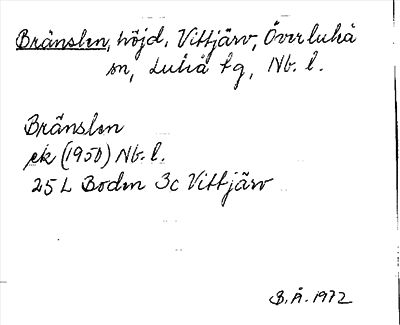 Brånslen, höjd, Vittjärv, Överluleå
sn, Luleå tg, Nb. l.
Brånslen
ek (1950) Nb. l.
25 L Boden 3c Vittjärv
B. Å. 1972